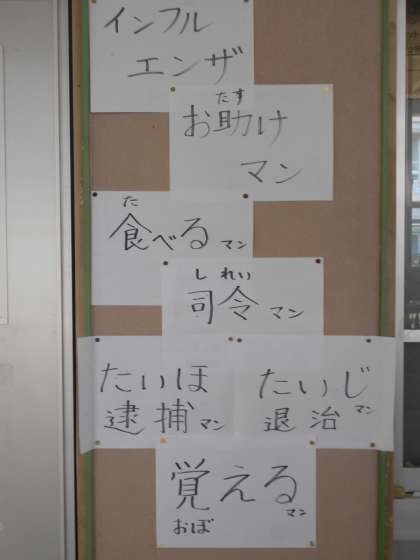 インフル
エンザ
たす
お助け
マン
た
食べる マン
しれい
司令 マン
たいほ
逮捕 マン
たいじ
退治 マン
覚える マン
おぼ